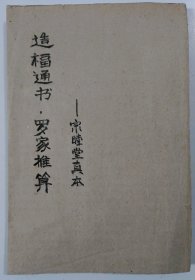 造福通书·罗家推算
—宗睦堂真本